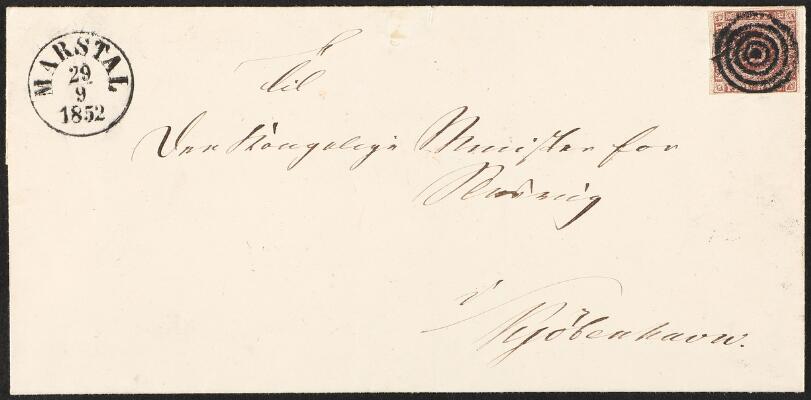 MARSTAL
29
9
1852
Til
Den Kongelige Minister for
Slesvig
i
Kjöbenhavn.